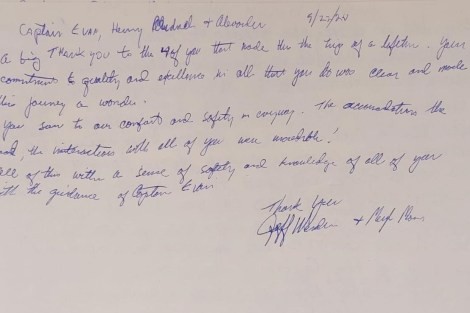 Captain Evan, Henry & Alexander 9/23/24
A big Thank you to the 4 of you that made this the trip of a lifetime. Your
commitment to quality and excellence in all that you do was clear and made
this journey a wonder.
You saw to our comfort and safety in every way. The accomodations the
, the interactions with all of you were incredible!
all of this with a sense of safety and knowledge of all of your
with the guidance of Captain Evan
Thank You
Jeff &